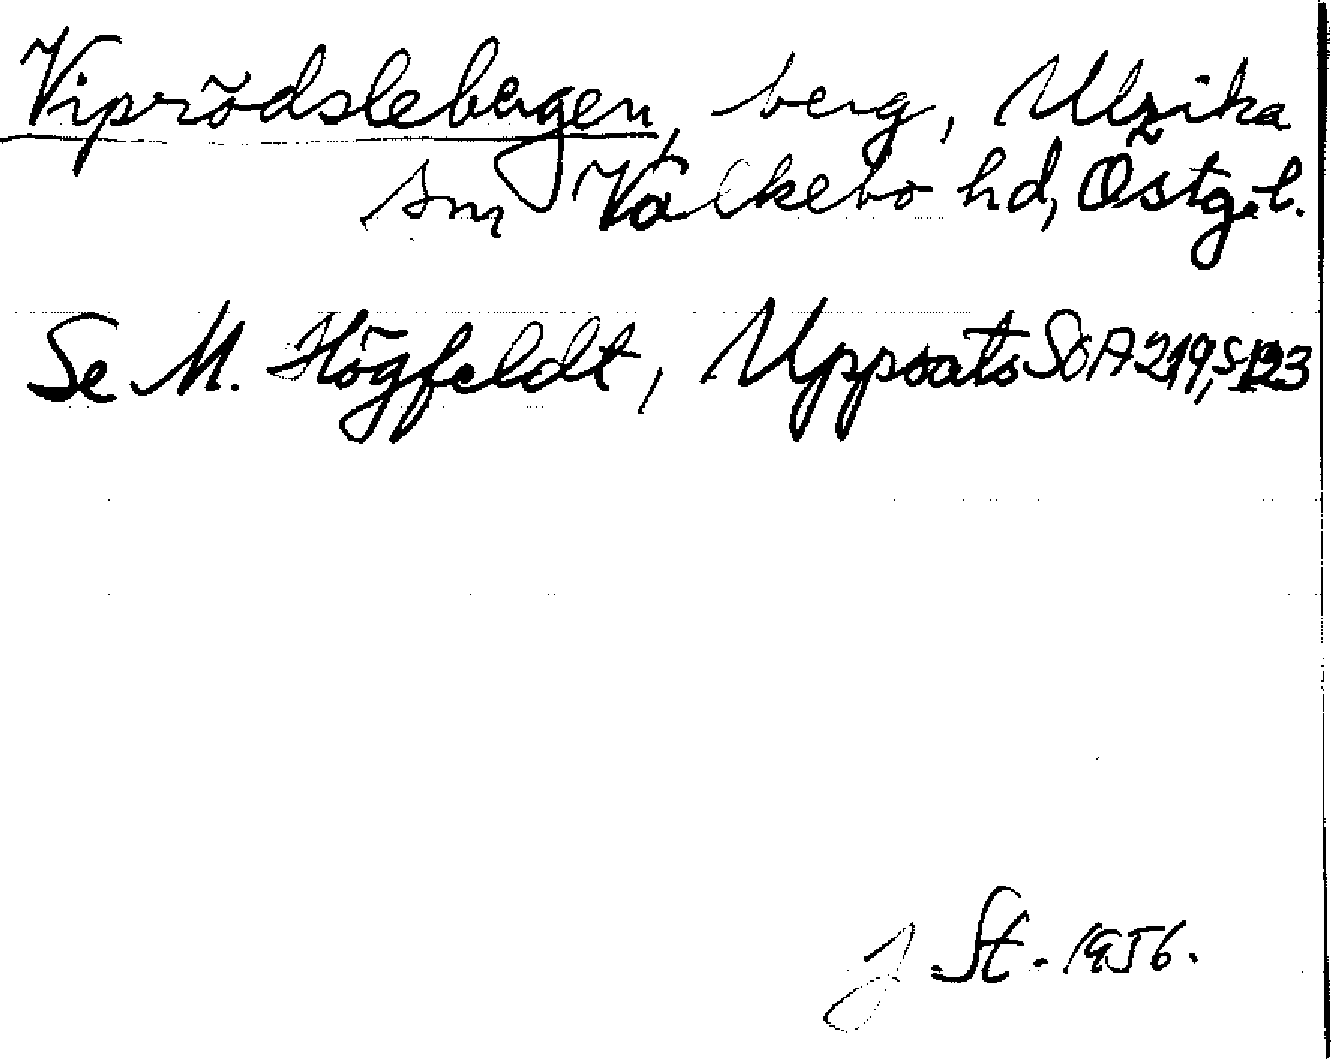 Viprödslebergen, berg, Ulrika
sn, Valkebo hd, Östg.l.
Se M. Högfeldt, Uppsats SOA 219, s. 123
J St. 1956.